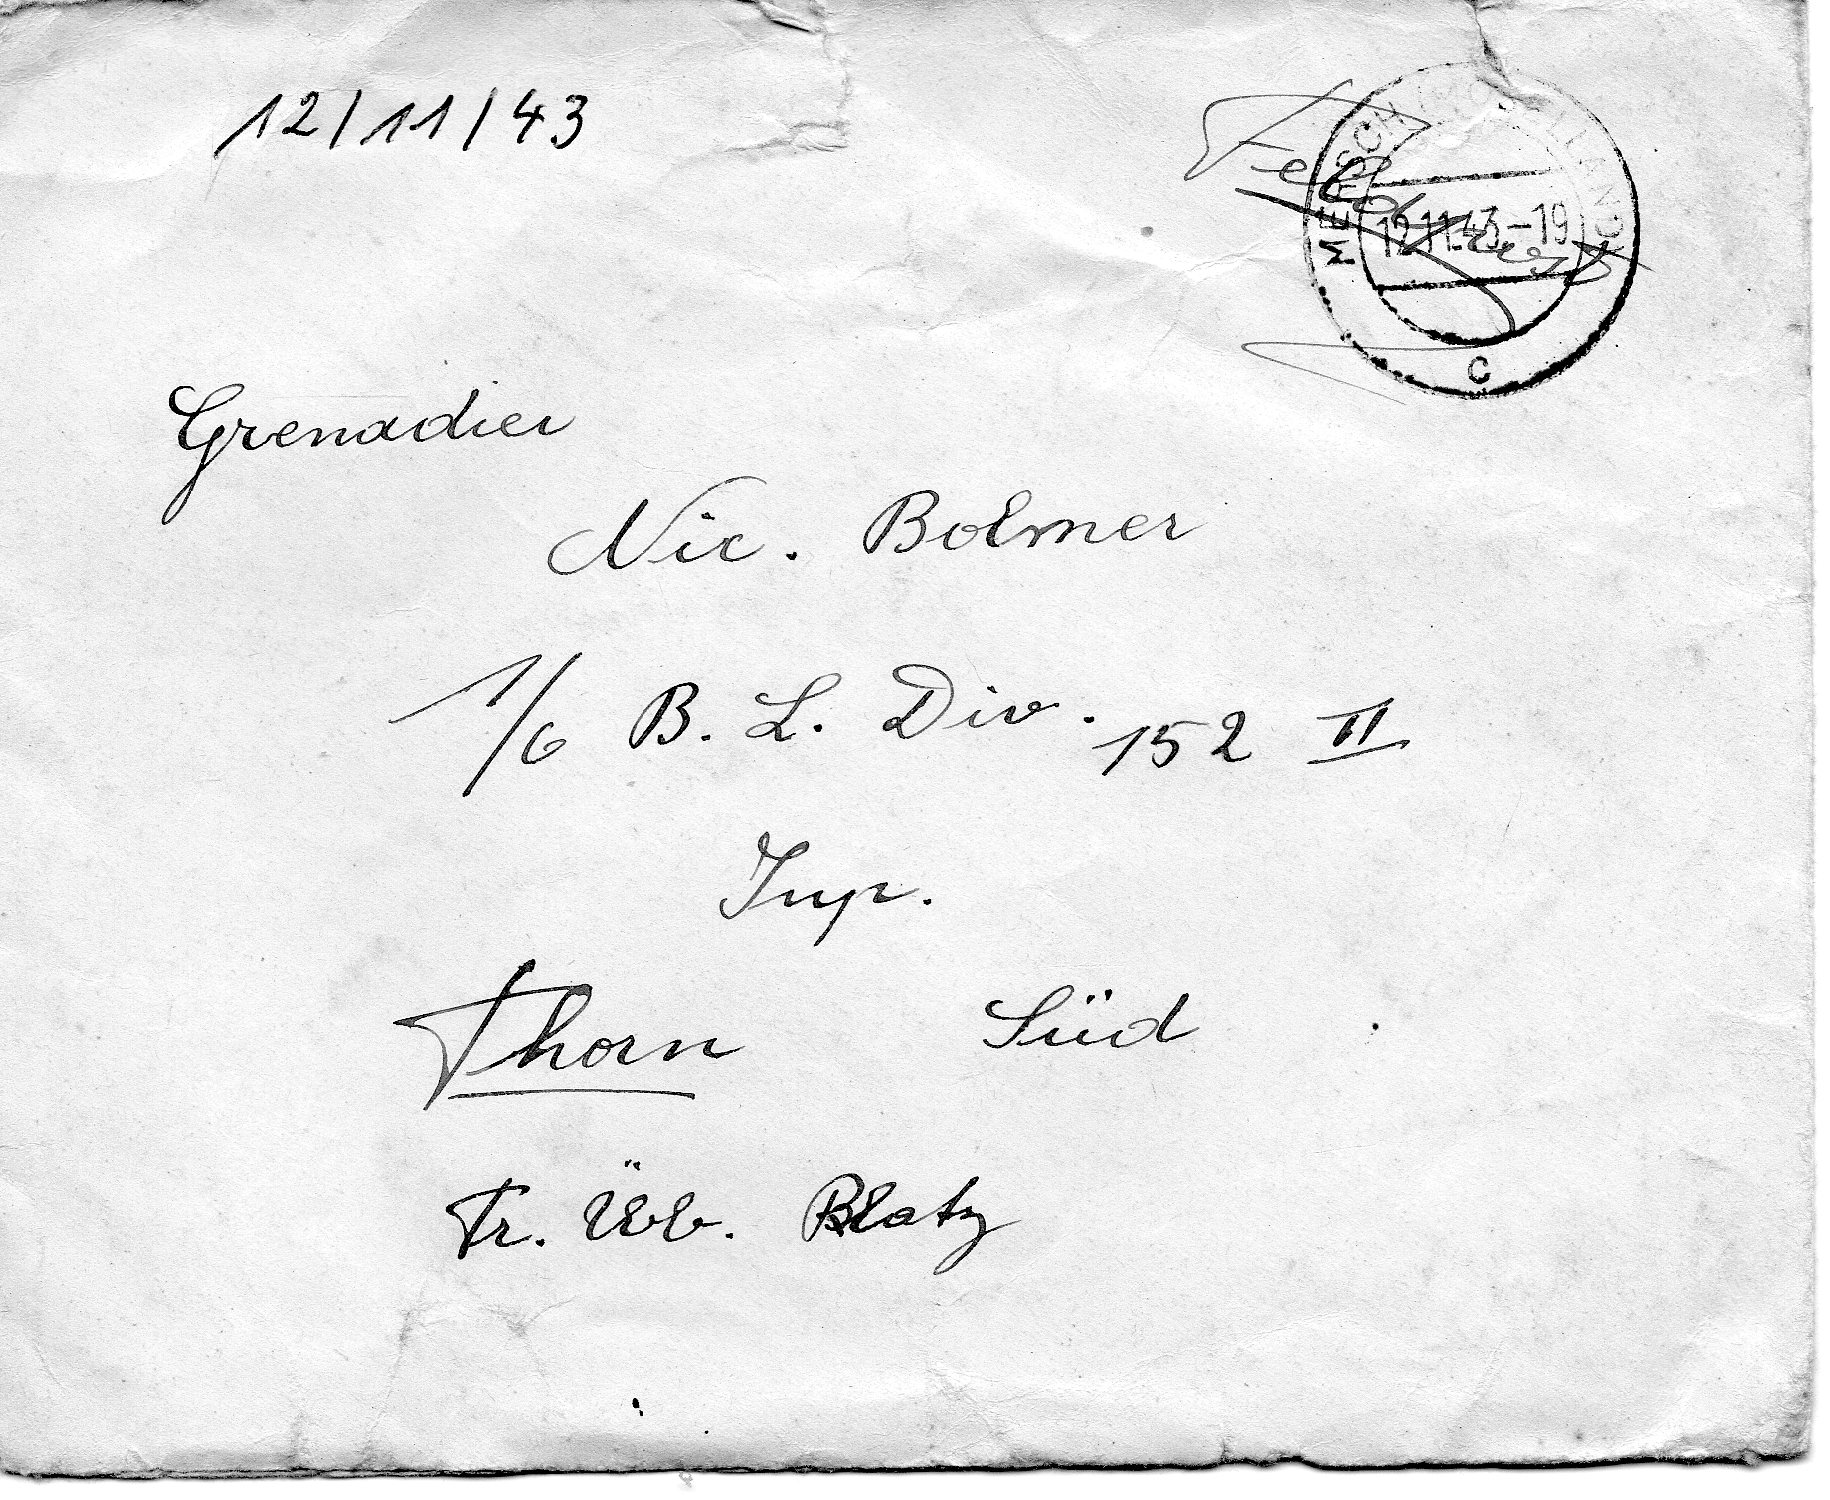 12/11/43
Feldpost
MERSCH
12.11.43-19
c
Grenadier
Nic. Bolmer
1/6 B. L. Div. 152 II
Inp.
Thorn Süd
Tr. Üb. Platz